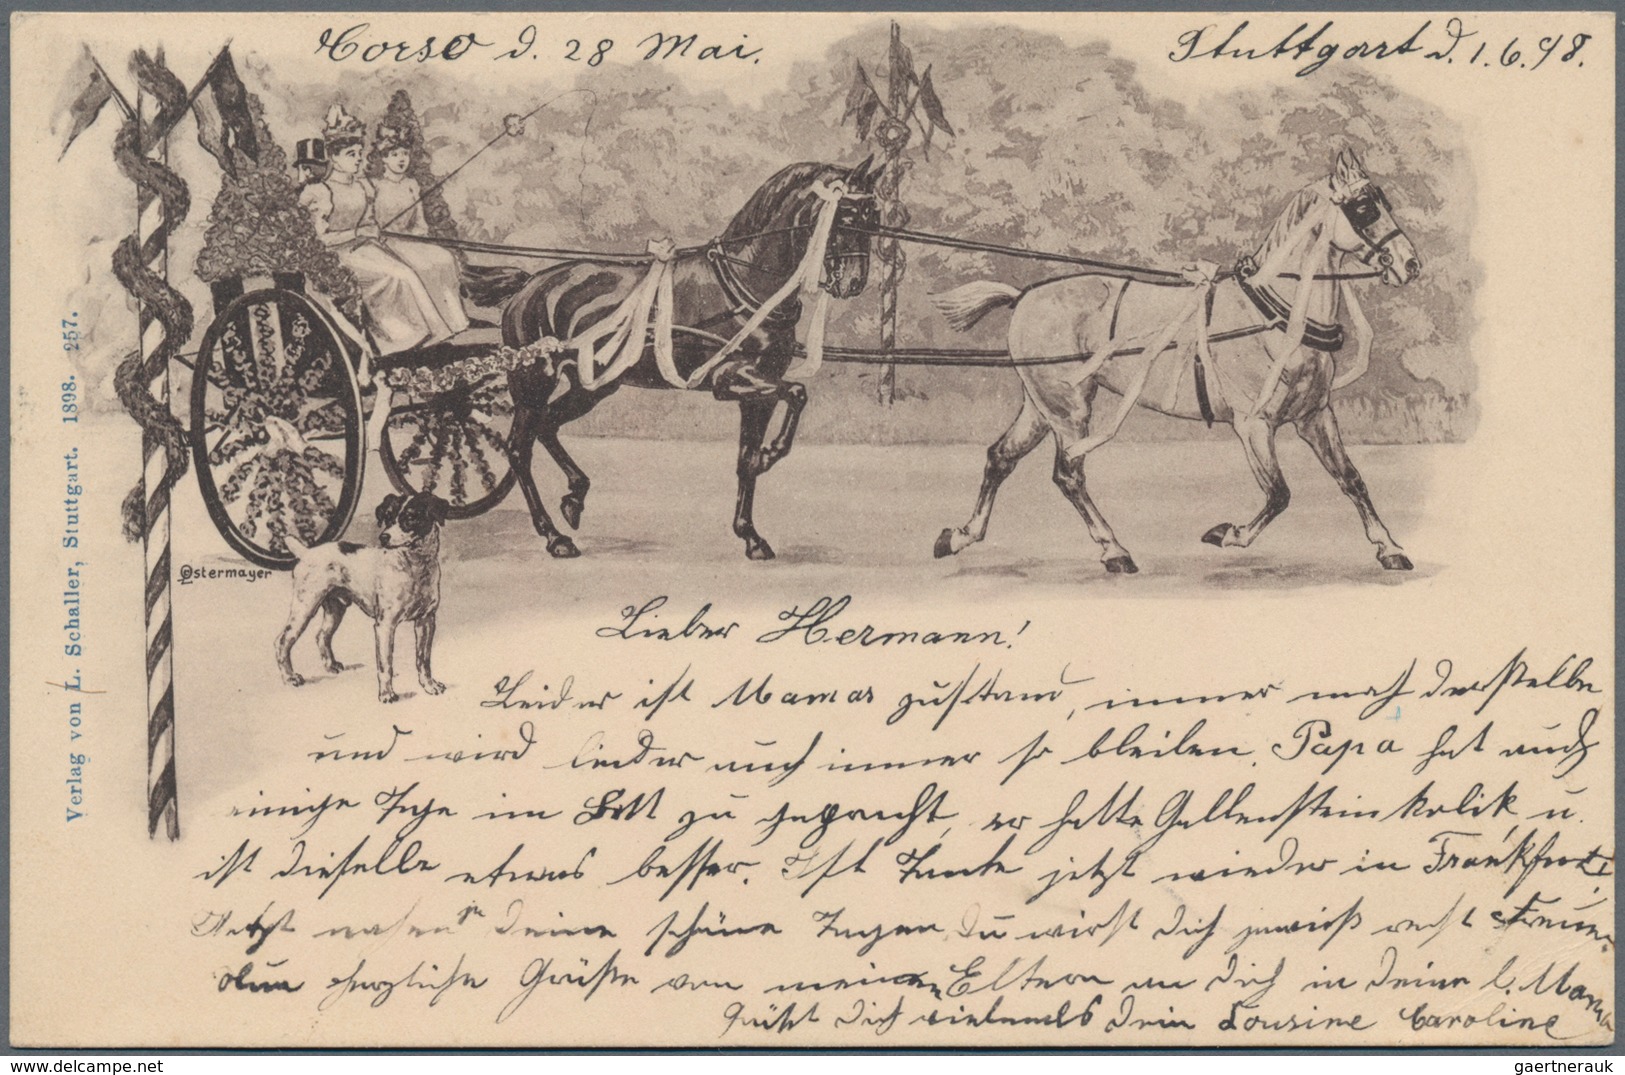 Corso d. 28 Mai.
Stuttgart d. 1.6.98.
Verlag von L. Schaller, Stuttgart. 1898. 257.
Ostermayer
Lieber Hermann!
Leider ist Mamas zustand, immer noch derselbe
und wird leider auch immer so bleiben. Papa hat auch
einige Tage im Bett zu gebracht, er hatte Gallensteinkolik u.
ist dieselbe etwas besser. Ist Tante jetzt wieder in Frankfurt?
Jetzt nahen ja deine schöne Tagen, Du wirst dich gewiß recht freuen.
Nun herzliche Grüße von meinen Eltern an dich u deine l. Mama
Grüßt dich vielmals dein Cousine Caroline
delcampe.net
gaertnerauk